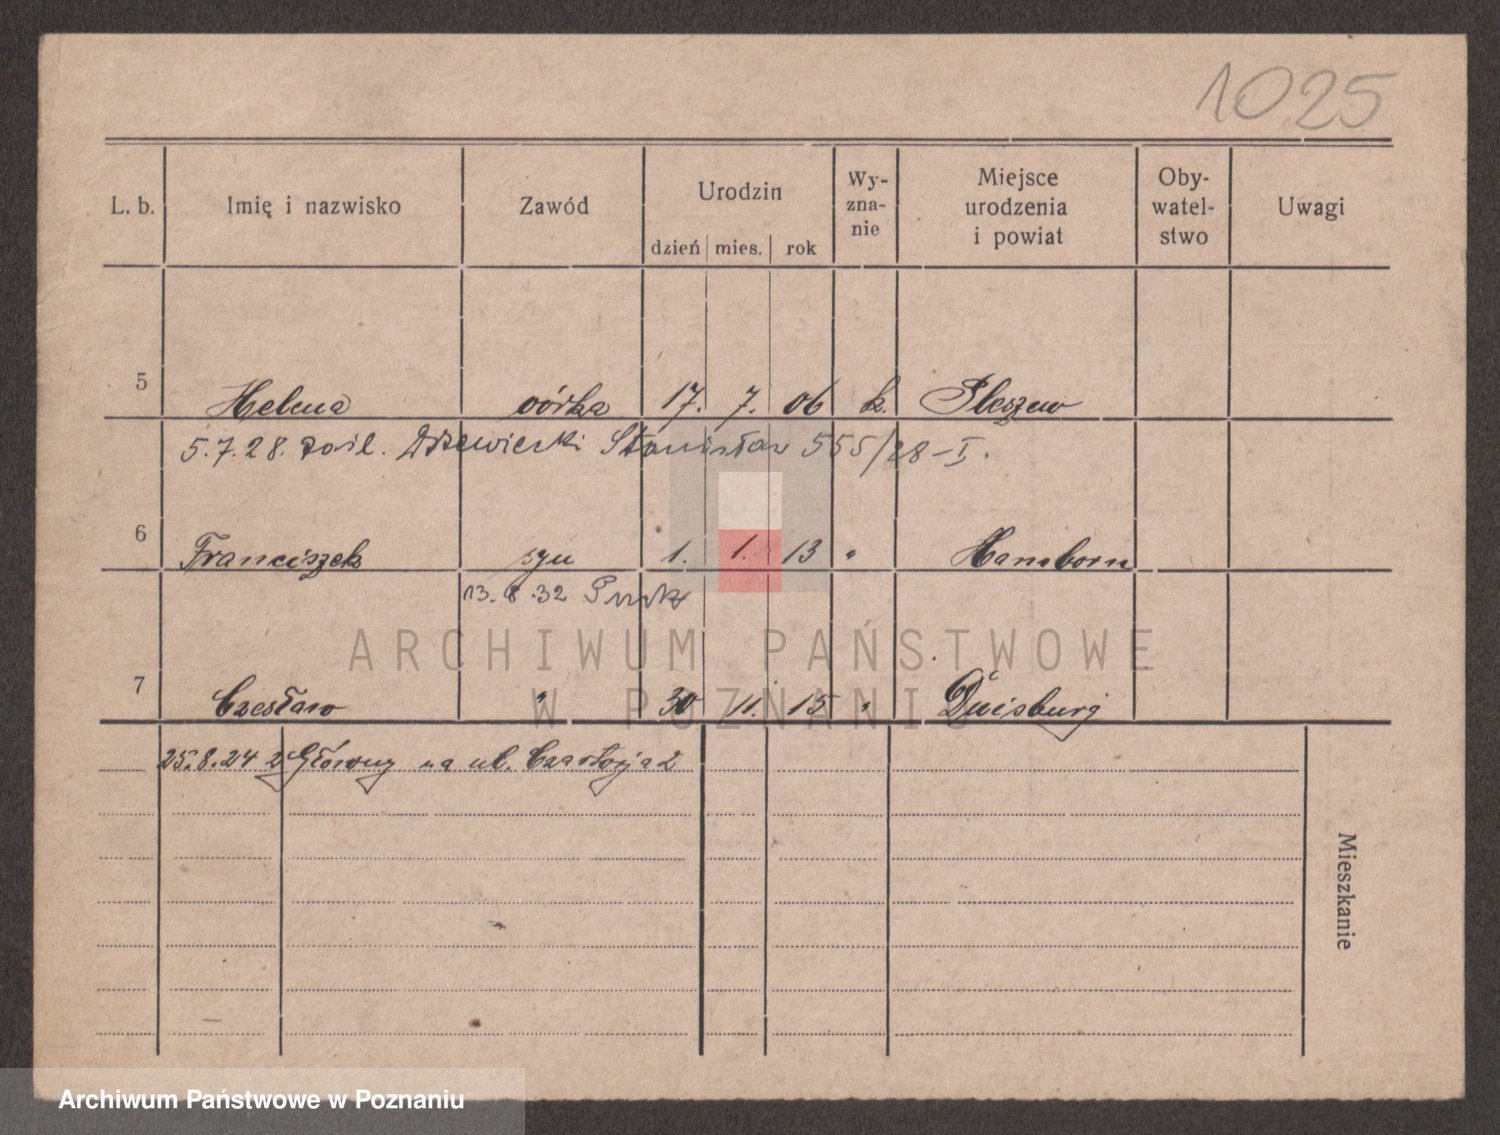 1025
L. b. Imię i nazwisko Zawód Urodzin dzień mies. rok Wy-zna-nie Miejsce urodzenia i powiat Oby-watel-stwo Uwagi
5 Helena córka 17. 7. 06 k. Pleszew
5.7.28. Drzewiecki Stanisław 555/28-I.
6 Franciszek syn 1. 1. 13 " Hamborn
13.8.32
7 Czesław " 30 11. 15 " Duisburg
25.8.24 z Główny na ul.
Mieszkanie
ARCHIWUM PAŃSTWOWE
W POZNANIU
Archiwum Państwowe w Poznaniu